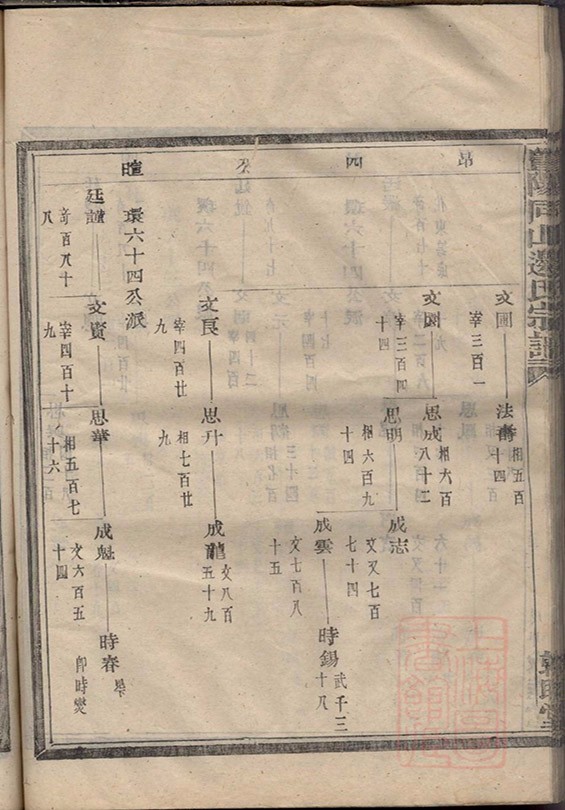 昂
四
公
暄
文國
宰三百一
法壽
相五百
十四
文圖
宰三百四
十四
思成
相六百
八十二
思明
相六百九
十四
成志
文又七百
七十四
成雲
文七百八
十五
時錫
武千三
十八
文良
宰四百廿
九
思升
相七百廿
九
成龍
文八百
五十九
環六十四公派
廷讓
奇百八十
八
文賓
宰四百十
九
思華
相五百七
十六
成魁
文六百五
十四
時春
舉
即時燮